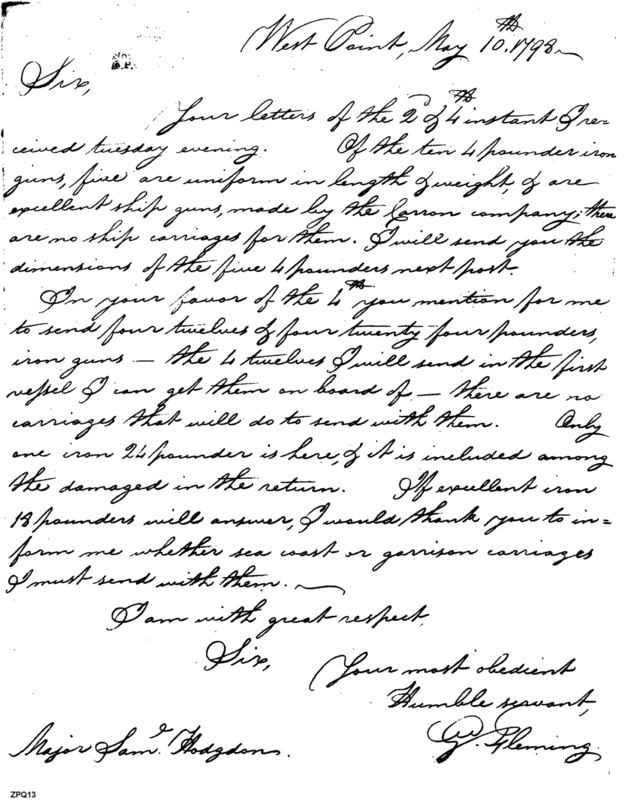 West Point, May 10.th 1798
Sir,
Your letters of the 2d & 4th instant I re=
ceived tuesday evening. Of the ten 4 pounder iron
guns, five are uniform in length & weight, & are
excellent ship guns, made by the Carron company; there
are no ship carriages for them. I will send you the
dimensions of the five 4 pounders next post.
In your favor of the 4th you mention for me
to send four twelves & four twenty four pounders,
iron guns — the 4 twelves I will send in the first
vessel I can get them on board of — there are no
carriages that will do to send with them. Only
one iron 24 pounder is here, & it is included among
the damaged in the return. If excellent iron
18 pounders will answer, I would thank you to in=
form me whether sea coast or garrison carriages
I must send with them.
I am with great respect,
Sir,
Your most obedient
Humble servant,
G. Fleming
Major Saml. Hodgdon.
ZPQ13